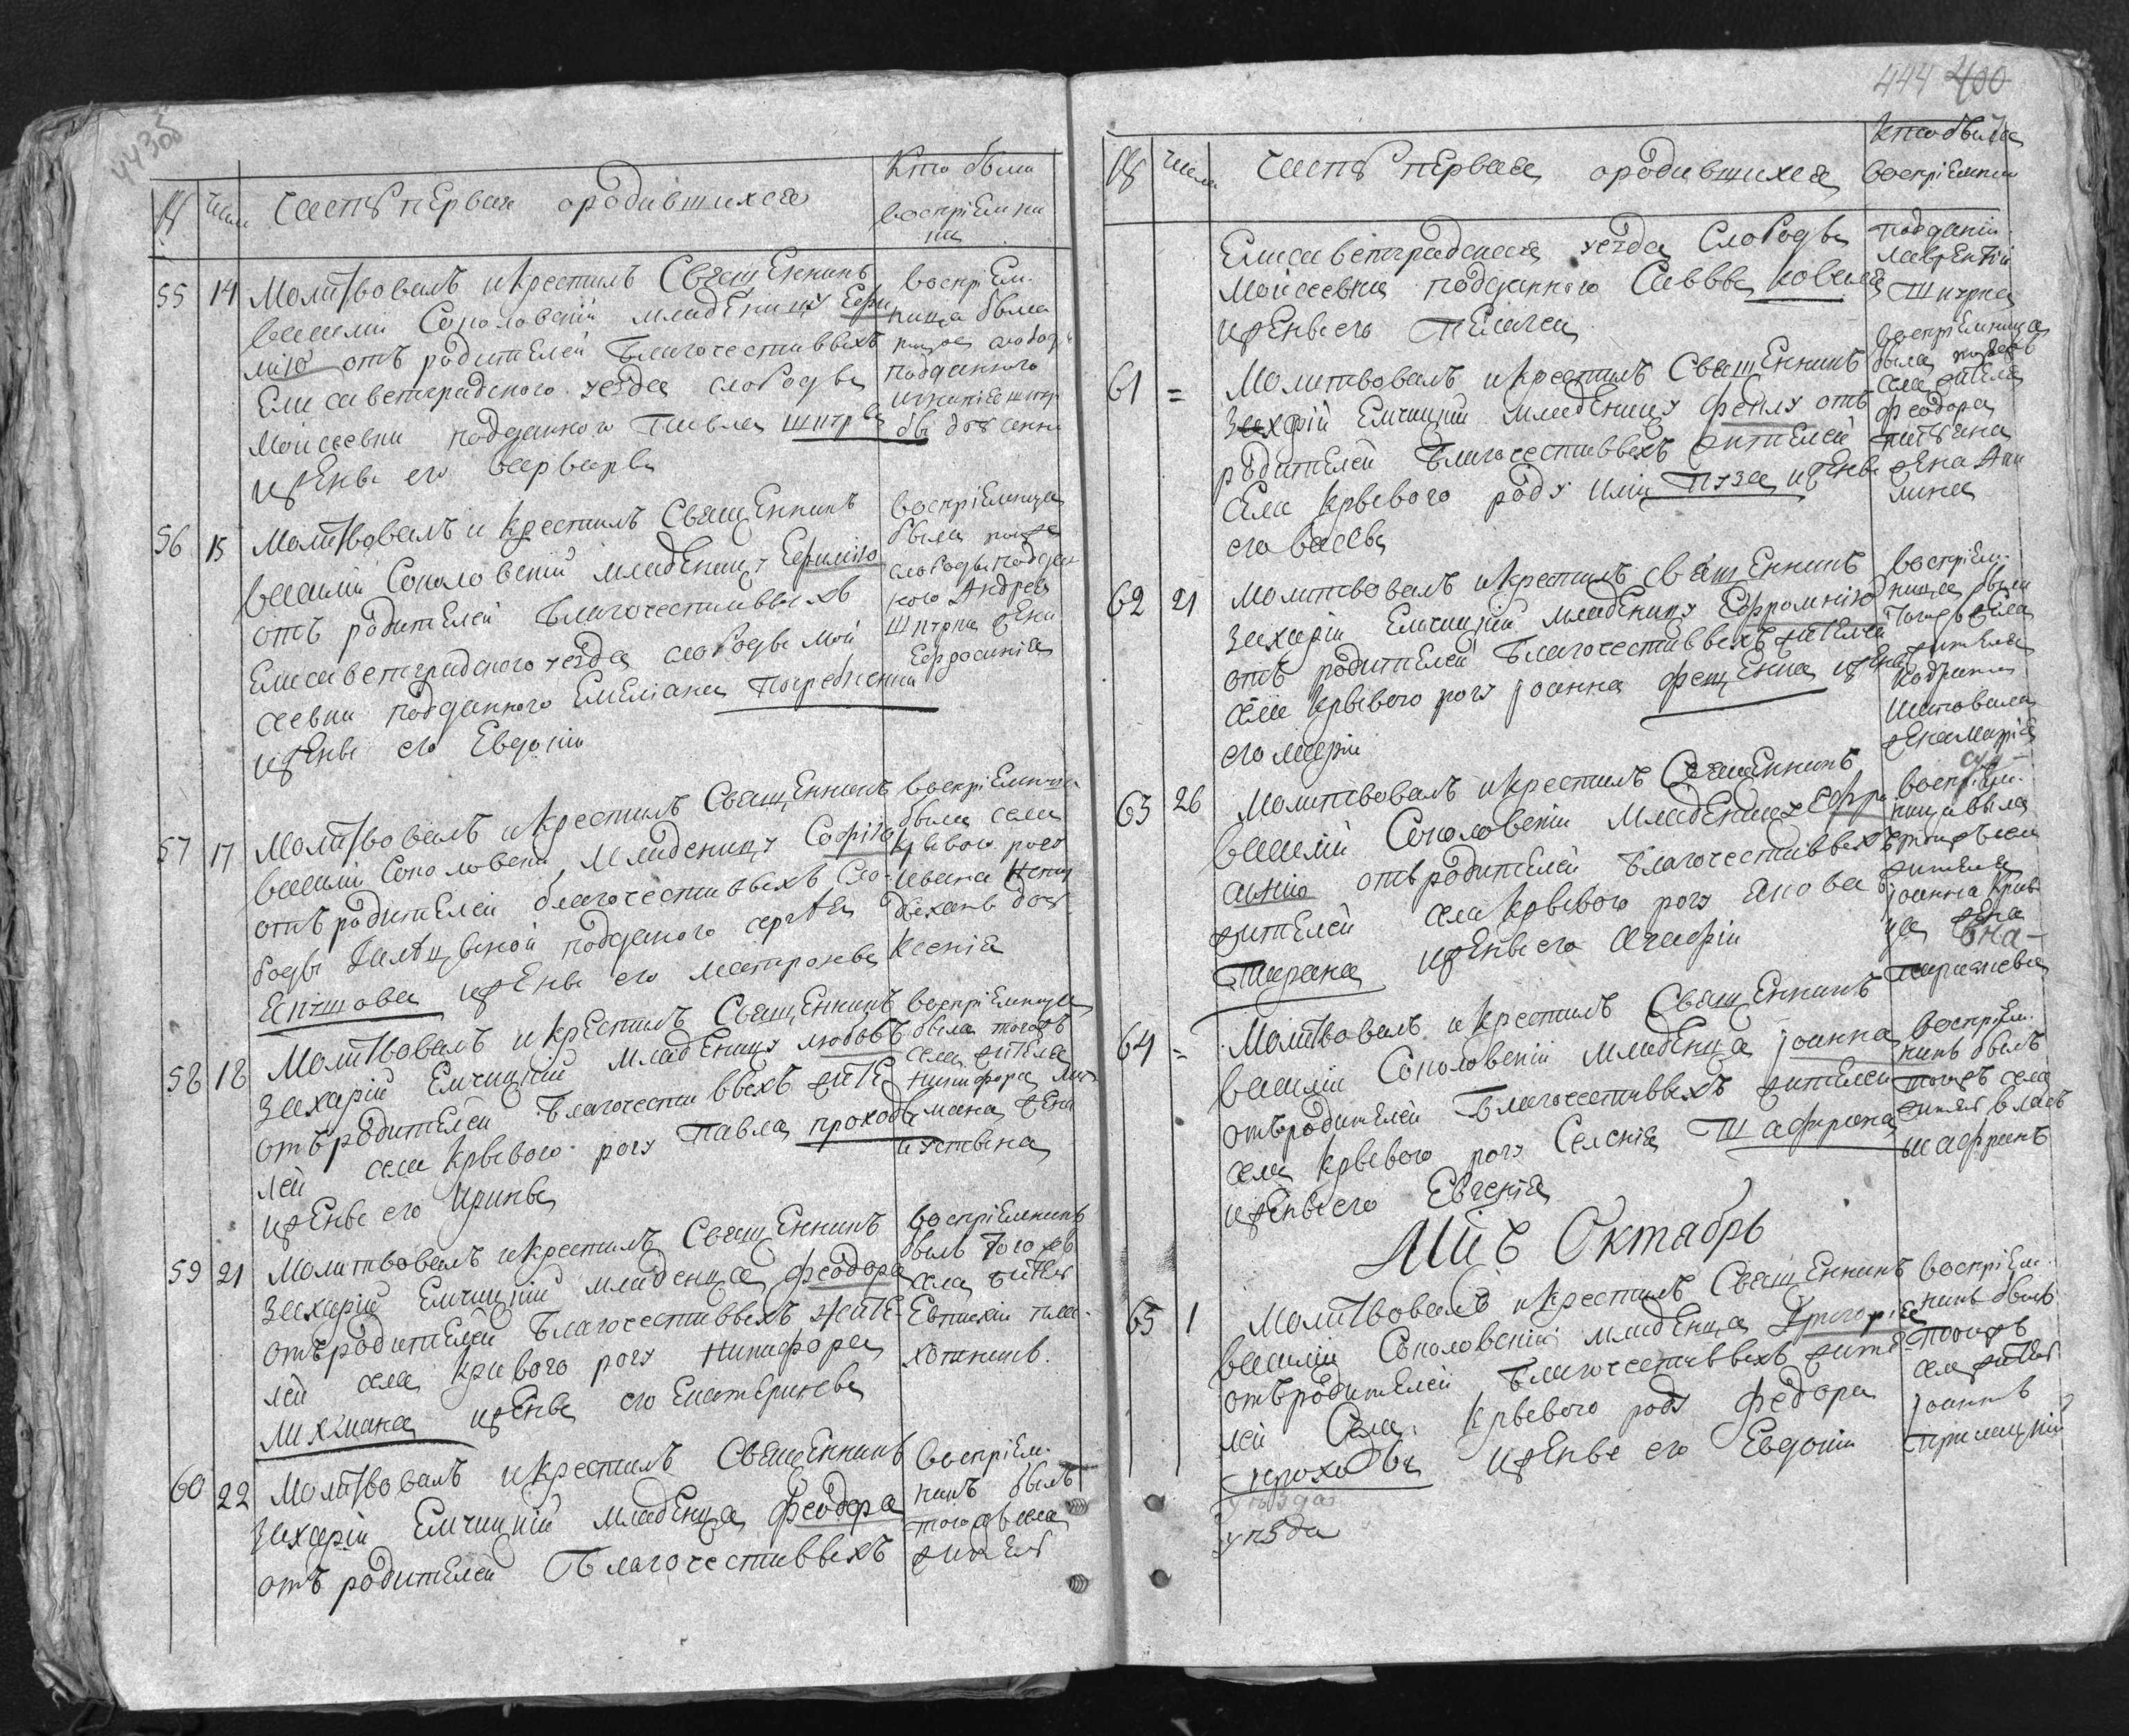 № Числ Часть первая ородившихся
Кто были
воспріемни
ки
55 14 Молитвовалъ и крестилъ Священникъ
василій Соколовскій младеницу Ефи
мию отъ родителей благочестивыхъ
Елисаветградского уезда слободы
Моисеевки подданного Павла Шпэры
и жены его варвары
воспріем-
ница была
подданного
56 15 Молитвовалъ и крестилъ Священникъ
василій Соколовскій младеницу Ефимію
отъ родителей благочестивыхъ
Елисаветградского уезда слободы Мой
сеевки подданного Емеліана Погребенка
и жены его Евдокіи
воспріемница
была
слободы поддан
ного Андрея
жена
Ефросинія
57 17 Молитвовалъ и крестилъ Священникъ
василій Соколовскій, младеницу Софію
отъ родителей благочестивыхъ сло-
боды подданого сергѣя
и жены его матроны
воспріемница
была села
Крывого рогу
Ивана
дочь
Ксенія
58 18 Молитвовалъ и крестилъ Священникъ
Захарій Емчицкій младеницу любовъ
отъ родителей благочестивыхъ жите
лей села Крывого рогу Павла проходы
и жены его Ирины
воспріемница
была тогожъ
села жителя
Никифора Лих
мана жена
иустина
59 21 Молитвовалъ и крестилъ Священникъ
Захарій Емчицкій младенца феодора
отъ родителей благочестивыхъ жите-
лей села Кривого рогу Никифора
Лихмана и жены его Екатерины
воспріемникъ
былъ того жъ
села житель
60 22 Молитвовалъ и крестилъ Священникъ
Захарій Емчицкій младенца феодора
отъ родителей благочестивыхъ
воспріем-
никъ былъ
тогожъ села
житель
444 400
№ Числ Часть первая ородившихся
Кто были
воспріемники
Елисаветградского уезда Слободы
Моисеевки подданного Саввы коваля
и жены его Пелагеи
подданій
лаврентій
Шпэрка
61 = Молитвовалъ и крестилъ Священникъ
Захарій Емчицкій младеницу феклу отъ
родителей благочестивыхъ жителей
села Крывого рогу Пуза и жены
его
воспріемница
была тогожъ
села жителя
феодора
жена
62 21 Молитвовалъ и крестилъ священникъ
Захарій Емчицкій младеницу Ефросинію
отъ родителей благочестивыхъ жителей
села Крывого рогу іоанна фещенка и жены
его маріи
воспріем-
ница была
тогожъ села
жителя
Кодрата
Шаповала
жена Марія
63 26 Молитвовалъ и крестилъ Священникъ
василій Соколовскій младеницу Ефро
синію отъ родителей благочестивыхъ
жителей села Крывого рогу якова
Тарана и жены его Агафіи
воспріем-
ница была
тогожъ села
жителя
іоанна
жена
64 = Молитвовалъ и крестилъ Священникъ
василій Соколовскій младенца іоанна
отъ родителей благочестивыхъ жителей
села Крывого рогу Шафрана
и жены его Евгенія
воспріем-
никъ былъ
тогожъ села
житель власъ
шафранъ
Мцъ Октабрь
65 1 Молитвовалъ и крестилъ Священникъ
василій Соколовскій младенца Григорія
отъ родителей благочестивыхъ жите-
лей Села Крывого рогу федора
проходы и жены его Евдокіи
воспріем-
никъ былъ
тогожъ
села житель
іоаннъ